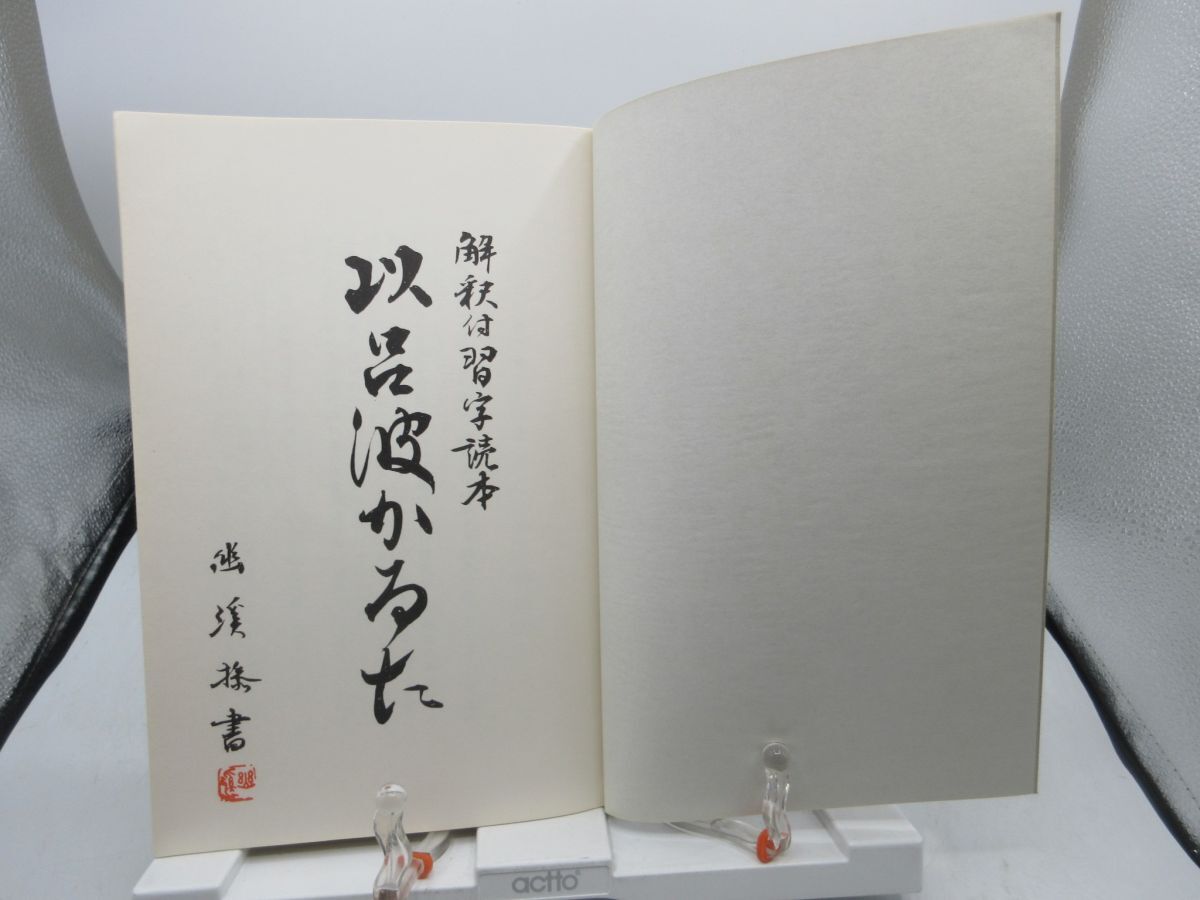 解釈付習字読本
以呂波かるた
幽溪操書
actto